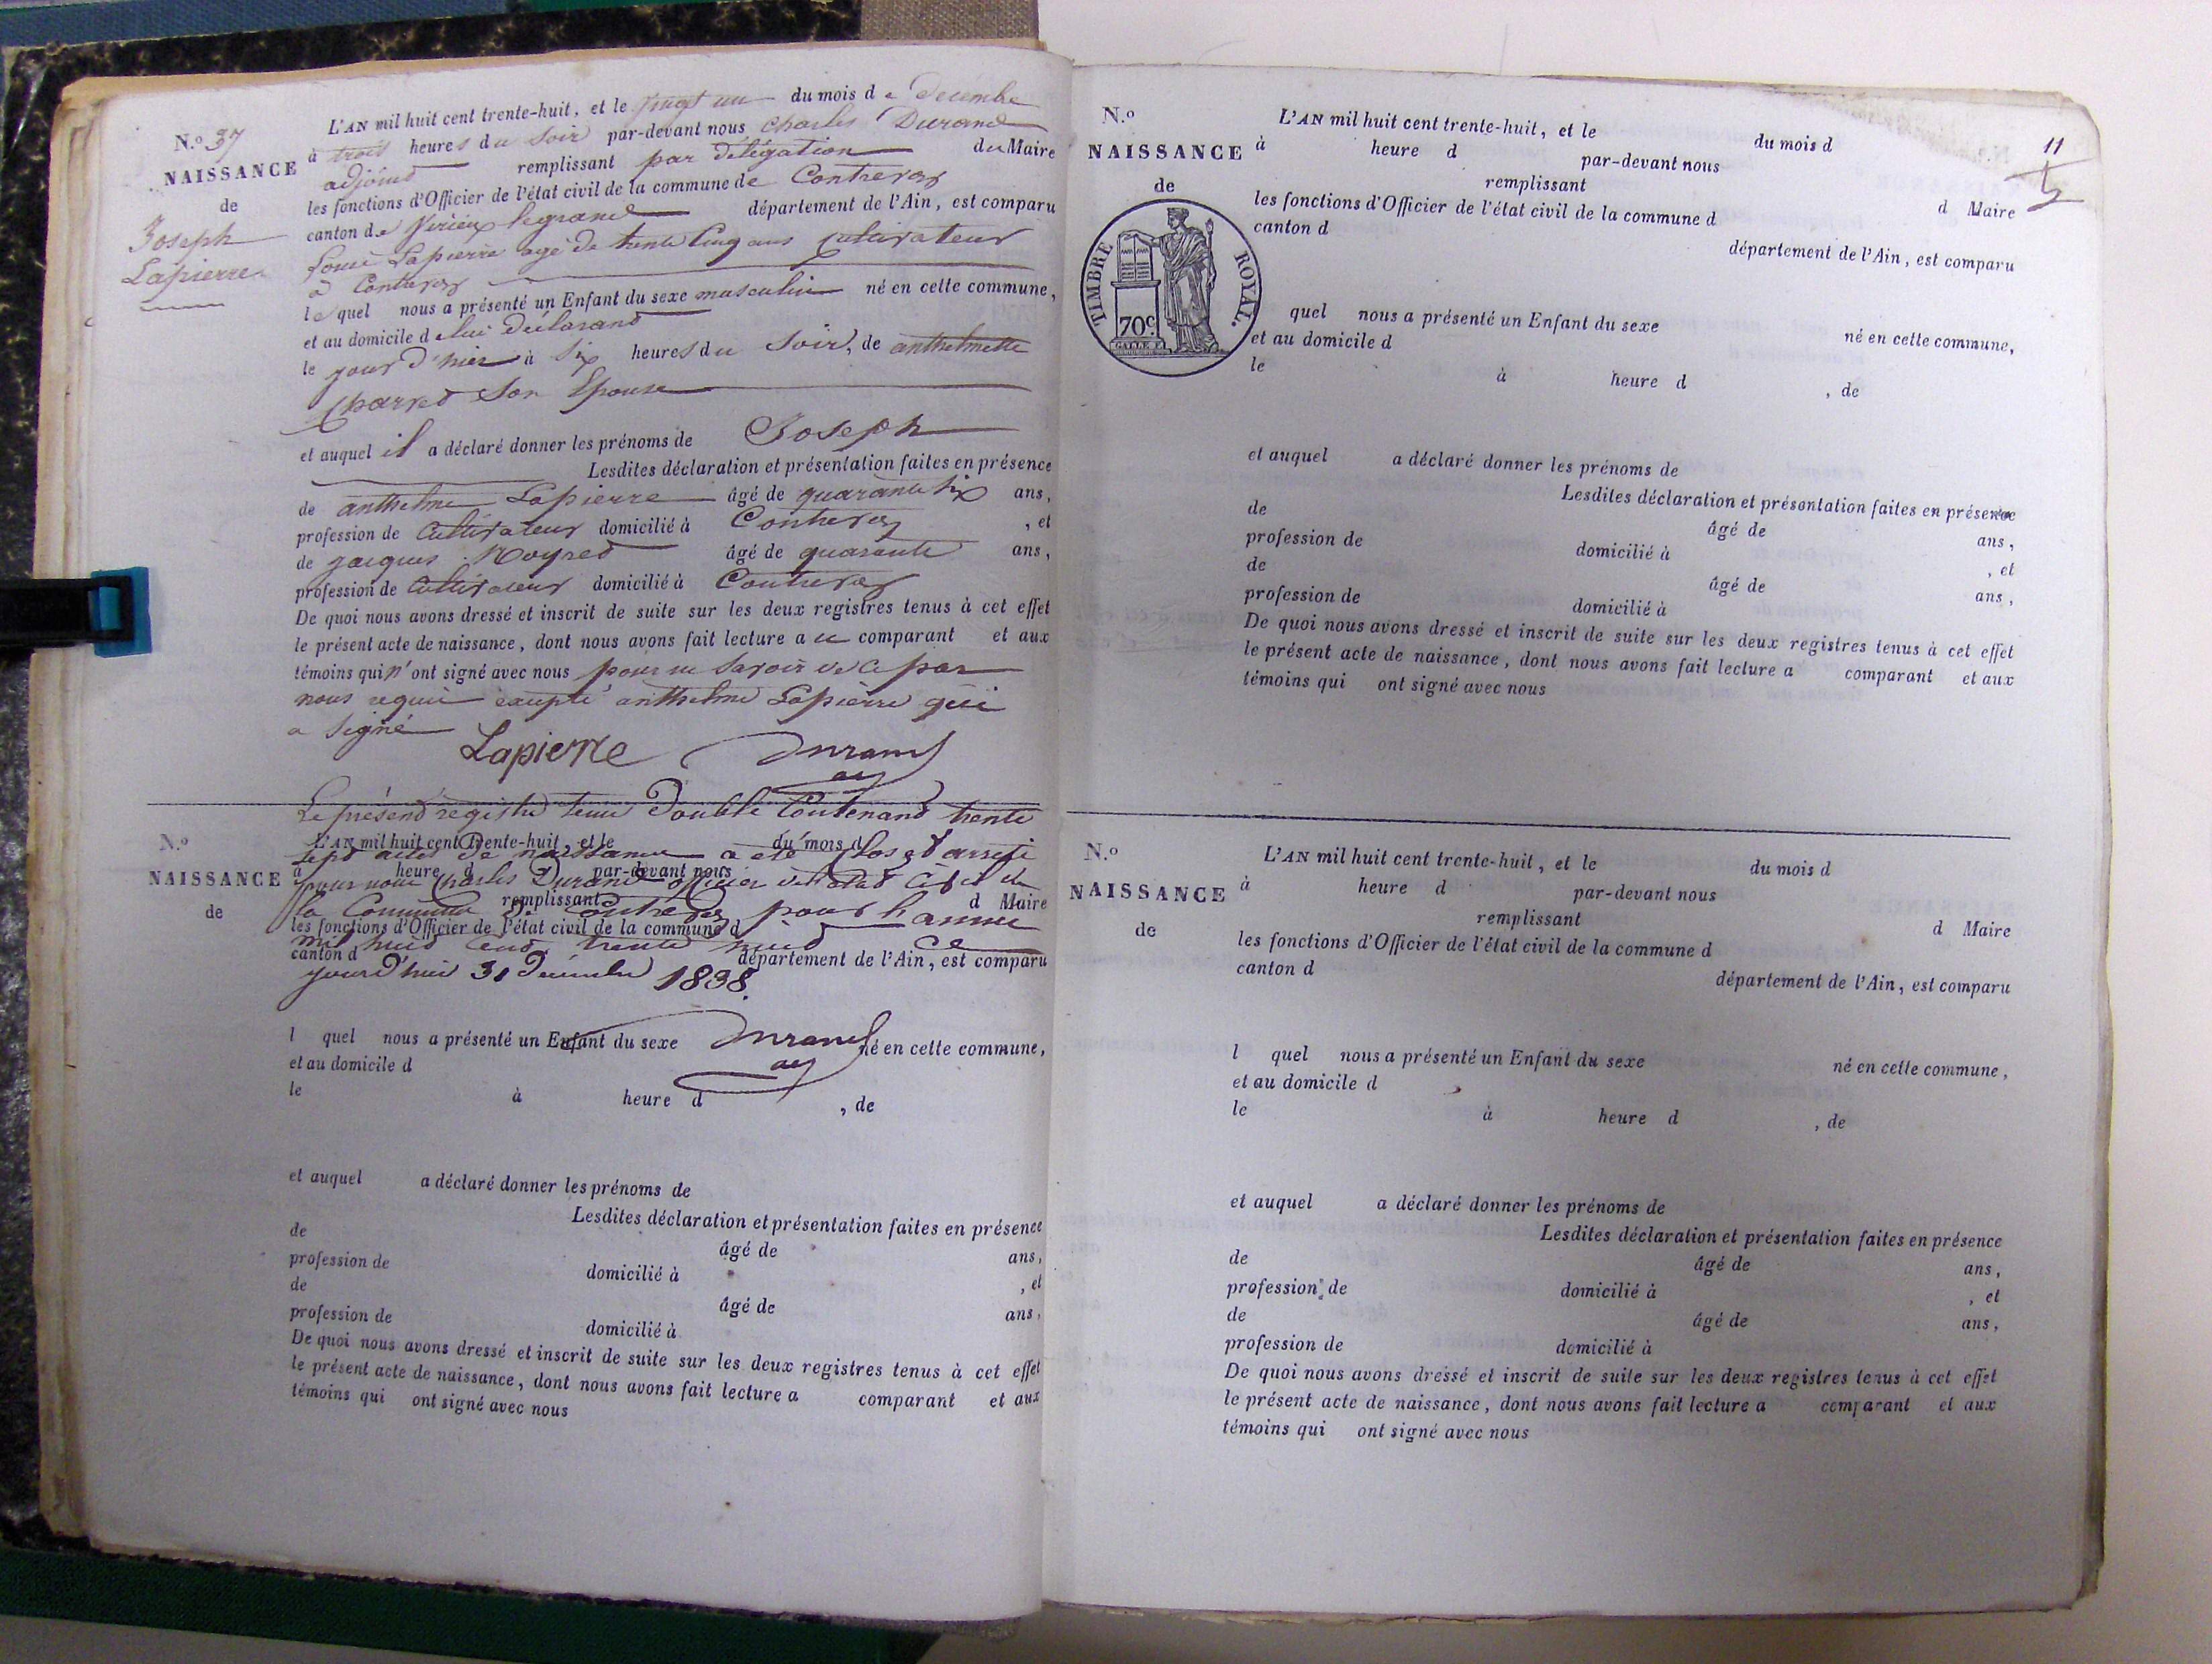 N.º 37
NAISSANCE
de
Joseph
Lapierre
L'AN mil huit cent trente-huit, et le vingt un du mois de décembre
à trois heures du soir par-devant nous Charles Durand
adjoint remplissant par délégation du Maire
les fonctions d'Officier de l'état civil de la commune de Contrevoz
canton de Virieu legrand département de l'Ain, est comparu
Louis Lapierre agé de trente cinq ans cultivateur
à Contrevoz
lequel nous a présenté un Enfant du sexe masculin né en cette commune,
et au domicile de lui déclarand
le jour d'hier à six heures du soir, de anthelmette
Charvet son Epouse
et auquel il a déclaré donner les prénoms de Joseph
Lesdites déclaration et présentation faites en présence
de anthelme Lapierre âgé de quarante six ans,
profession de Cultivateur domicilié à Contrevoz, et
de jacques Moyret âgé de quarante ans,
profession de Cultivateur domicilié à Contrevoz
De quoi nous avons dressé et inscrit de suite sur les deux registres tenus à cet effet
le présent acte de naissance, dont nous avons fait lecture au comparant et aux
témoins qui n'ont signé avec nous pour ne savoir de ce par
nous requis excepté anthelme Lapierre qui
a signé
Lapierre Durand
adj
Le présend registre tenu double Contenand trente
sept actes de naissance a été Clos et arreté
par nous Charles Durand officier de l'état Civil de
la Commune de Contrevoz pour l'année
mil huid cend trente huid ce
jourd'hui 31 Décembre 1838.
Durand
adj
N.º
NAISSANCE
de
L'AN mil huit cent trente-huit, et le du mois d
à heure d par-devant nous
remplissant d Maire
les fonctions d'Officier de l'état civil de la commune d
canton d département de l'Ain, est comparu
l quel nous a présenté un Enfant du sexe né en cette commune,
et au domicile d
le à heure d , de
et auquel a déclaré donner les prénoms de
Lesdites déclaration et présentation faites en présence
de âgé de ans,
profession de domicilié à , et
de âgé de ans,
profession de domicilié à
De quoi nous avons dressé et inscrit de suite sur les deux registres tenus à cet effet
le présent acte de naissance, dont nous avons fait lecture a comparant et aux
témoins qui ont signé avec nous
11
N.º
NAISSANCE
de
TIMBRE ROYAL.
70c.
GALLE F.
L'AN mil huit cent trente-huit, et le du mois d
à heure d par-devant nous
remplissant d Maire
les fonctions d'Officier de l'état civil de la commune d
canton d département de l'Ain, est comparu
quel nous a présenté un Enfant du sexe né en cette commune,
et au domicile d
le à heure d , de
et auquel a déclaré donner les prénoms de
Lesdites déclaration et présentation faites en présence
de âgé de ans,
profession de domicilié à , et
de âgé de ans,
profession de domicilié à
De quoi nous avons dressé et inscrit de suite sur les deux registres tenus à cet effet
le présent acte de naissance, dont nous avons fait lecture a comparant et aux
témoins qui ont signé avec nous
N.º
NAISSANCE
de
L'AN mil huit cent trente-huit, et le du mois d
à heure d par-devant nous
remplissant d Maire
les fonctions d'Officier de l'état civil de la commune d
canton d département de l'Ain, est comparu
l quel nous a présenté un Enfant du sexe né en cette commune,
et au domicile d
le à heure d , de
et auquel a déclaré donner les prénoms de
Lesdites déclaration et présentation faites en présence
de âgé de ans,
profession de domicilié à , et
de âgé de ans,
profession de domicilié à
De quoi nous avons dressé et inscrit de suite sur les deux registres tenus à cet effet
le présent acte de naissance, dont nous avons fait lecture a comparant et aux
témoins qui ont signé avec nous